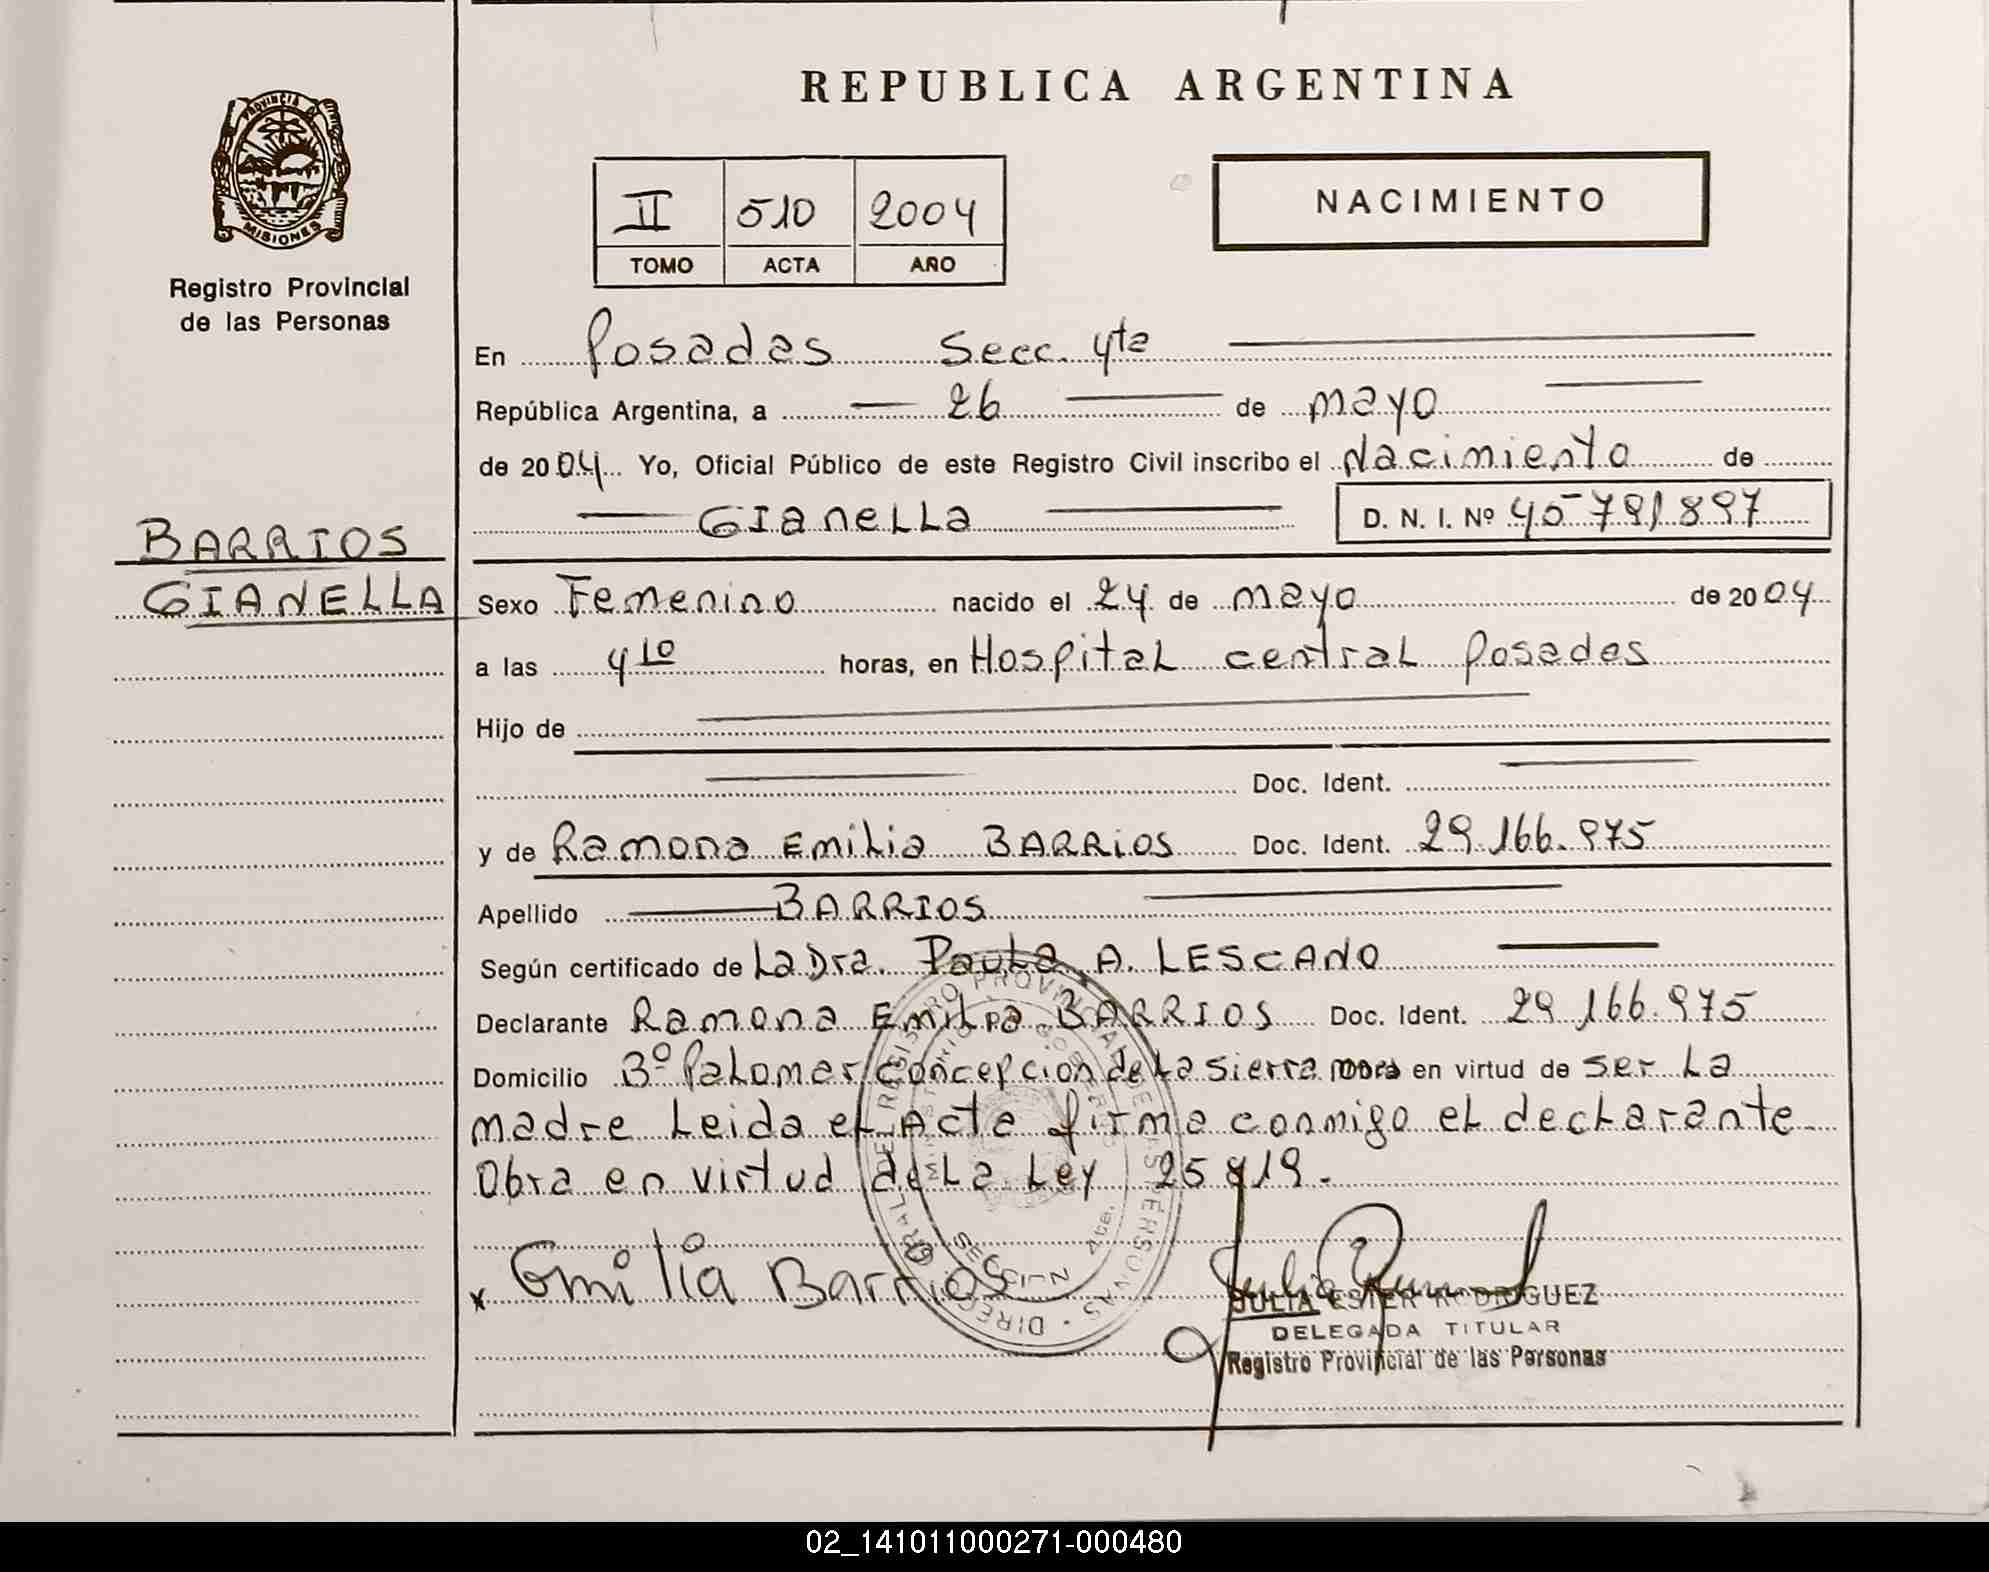 REPUBLICA ARGENTINA
PROVINCIA D MISIONES
Registro Provincial
de las Personas
II 510 2004
TOMO ACTA AÑO
NACIMIENTO
En Posadas Secc. 4ta
República Argentina, a 26 de mayo
de 2004 Yo, Oficial Público de este Registro Civil inscribo el Nacimiento de
GIaneLLa D. N. I. Nº 45 791 897
BARRIOS
GIANELLA
Sexo Femenino nacido el 24 de mayo de 2004
a las 4 10 horas, en HospitaL centraL Posadas
Hijo de
Doc. Ident.
y de Ramona EmiLia BARRiOS Doc. Ident. 29.166.975
Apellido BARRIOS
Según certificado de La Dra. PauLa A. LESCANO
Declarante Ramona EmiLia BARRIOS Doc. Ident. 29.166.975
Domicilio Bº PaLomar concepcion de La sierra en virtud de ser La
madre Leida eL Acta firma conmigo eL decLarante
Obra en virtud de La Ley 25 819.
x Emilia Barrios
DIRECC GRAL DE REGISTRO PROVINCIAL DE LAS PERSONAS
MINISTERIO GOB
SECCION 4ta.
JULIA ESTER RODRIGUEZ
DELEGADA TITULAR
Registro Provincial de las Personas
02_141011000271-000480